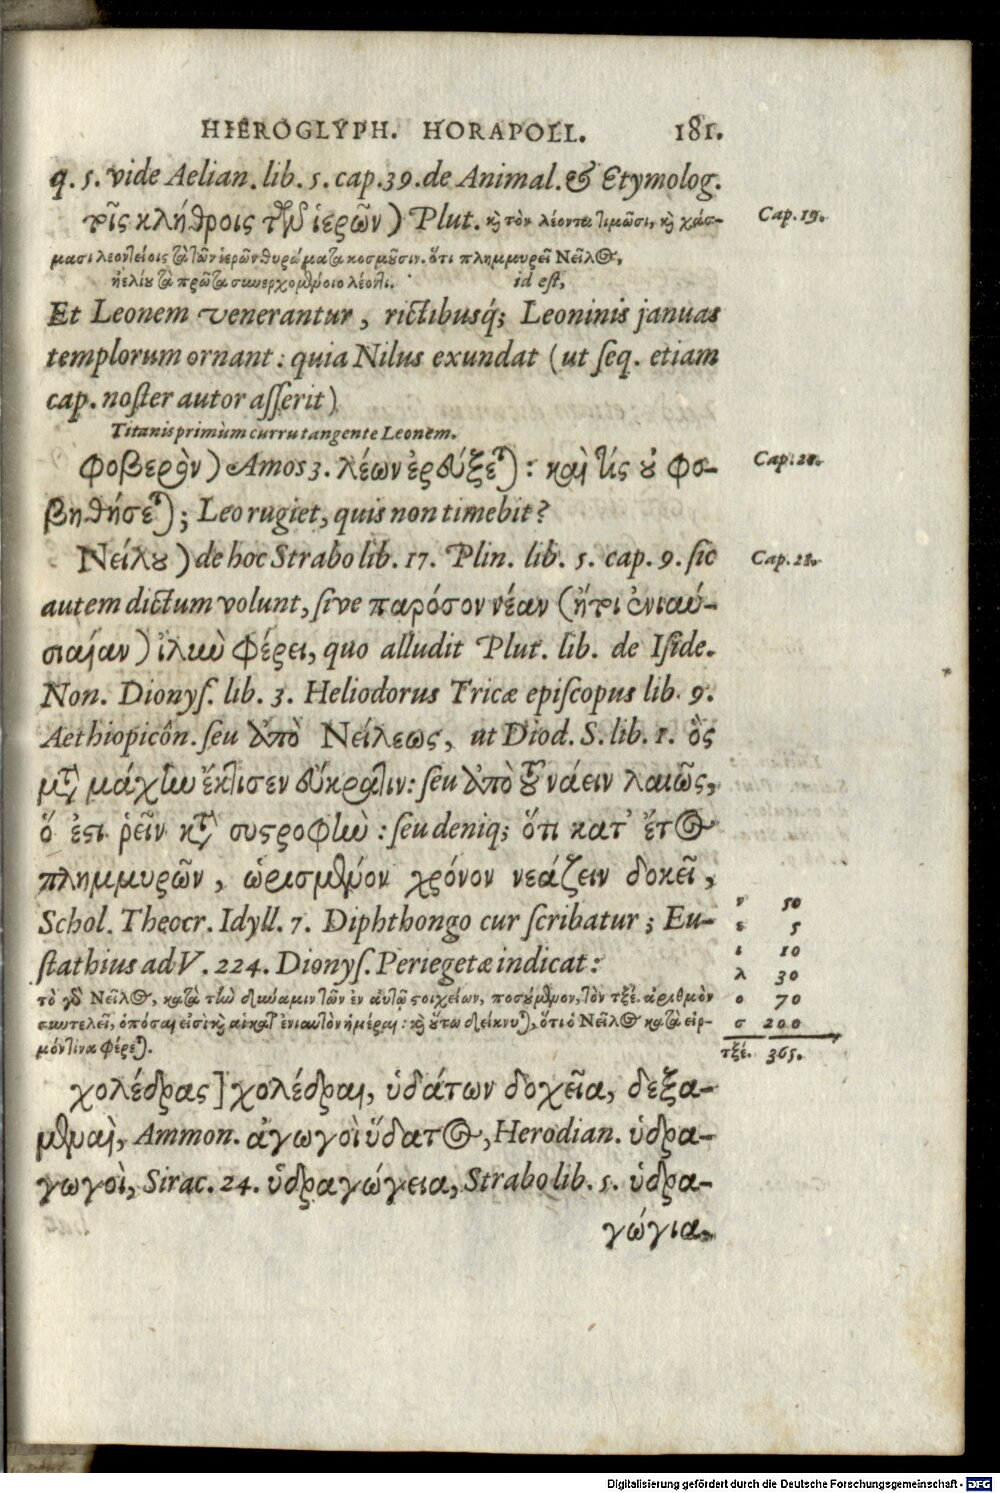 HIEROGLYPH. HORAPOLL. 181.
q. 5. vide Aelian. lib. 5. cap. 39. de Animal. & Etymolog.
τοῖς κλήθροις τῶν ἱερῶν) Plut. καὶ τὸν λέοντα τιμῶσι, καὶ χάσ-
Cap. 19.
μασι λεοντείοις τὰ τῶν ἱερῶν θυρώματα κοσμοῦσιν. ὅτι πλημμυρεῖ Νεῖλος,
ἠελίου τὰ πρῶτα συνερχομένοιο λέοντι. id est,
Et Leonem venerantur, rictibusq́; Leoninis januas
templorum ornant: quia Nilus exundat (ut ſeq. etiam
cap. noſter autor aſſerit)
Titanis primùm curru tangente Leonem.
φοβερὸν) Amos 3. λέων ἐρεύξεται: καὶ τίς οὐ φο-
Cap. 20.
βηθήσεται; Leo rugiet, quis non timebit?
Νείλου) de hoc Strabo lib. 17. Plin. lib. 5. cap. 9. ſic
Cap. 21.
autem dictum volunt, ſive παρόσον νέαν (ἤτοι ἐνιαύ-
σιαίαν) ἰλὺν φέρει, quo alludit Plut. lib. de Iſide.
Non. Dionyſ. lib. 3. Heliodorus Tricæ epiſcopus lib. 9.
Aethiopicôn. ſeu ἀπὸ Νείλεως, ut Diod. S. lib. 1. ὃς
μετὰ μάχην ἔκτισεν εὔκρατιν: ſeu ἀπὸ τοῦ νάειν λαιῶς,
ὅ ἐστι ῥεῖν κατὰ συστροφὴν: ſeu deniq; ὅτι κατ' ἔτος
πλημμυρῶν, ὡρισμένον χρόνον νεάζειν δοκεῖ,
Schol. Theocr. Idyll. 7. Diphthongo cur ſcribatur; Eu-
ſtathius ad V. 224. Dionyſ. Periegetæ indicat:
τὸ γὰρ Νεῖλος, κατὰ τὴν δύναμιν τῶν ἐν αὐτῷ στοιχείων, ποσούμενον, τὸν τξέ. ἀριθμὸν
συντελεῖ, ὁπόσαι εἰσὶ καὶ αἱ κατ' ἐνιαυτὸν ἡμέραι: καὶ οὕτω δείκνυται, ὅτι ὁ Νεῖλος κατὰ εἱρ-
μόν τινα φέρεται.
ν 50
ε 5
ι 10
λ 30
ο 70
σ 200
τξέ. 365.
χολέδρας] χολέδραι, ὑδάτων δοχεῖα, δεξα-
μεναὶ, Ammon. ἀγωγοὶ ὕδατος, Herodian. ὑδρα-
γωγοὶ, Sirac. 24. ὑδραγώγεια, Strabo lib. 5. ὑδρα-
γώγια,
Digitalisierung gefördert durch die Deutsche Forschungsgemeinschaft - DFG